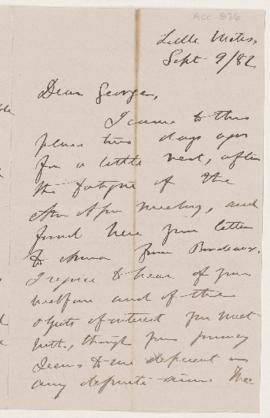 ACC-876
Little Metis,
Sept 9/82
Dear George,
I came to this
place two days ago
for a little rest, after
the fatigue of the
Am. Ass. meeting, and
found here your letter
to Anna from Bordeaux.
I rejoice to hear of your
welfare and of the
objects of interest you meet
with, though your journey
seems to me deficient in
any definite aim. The